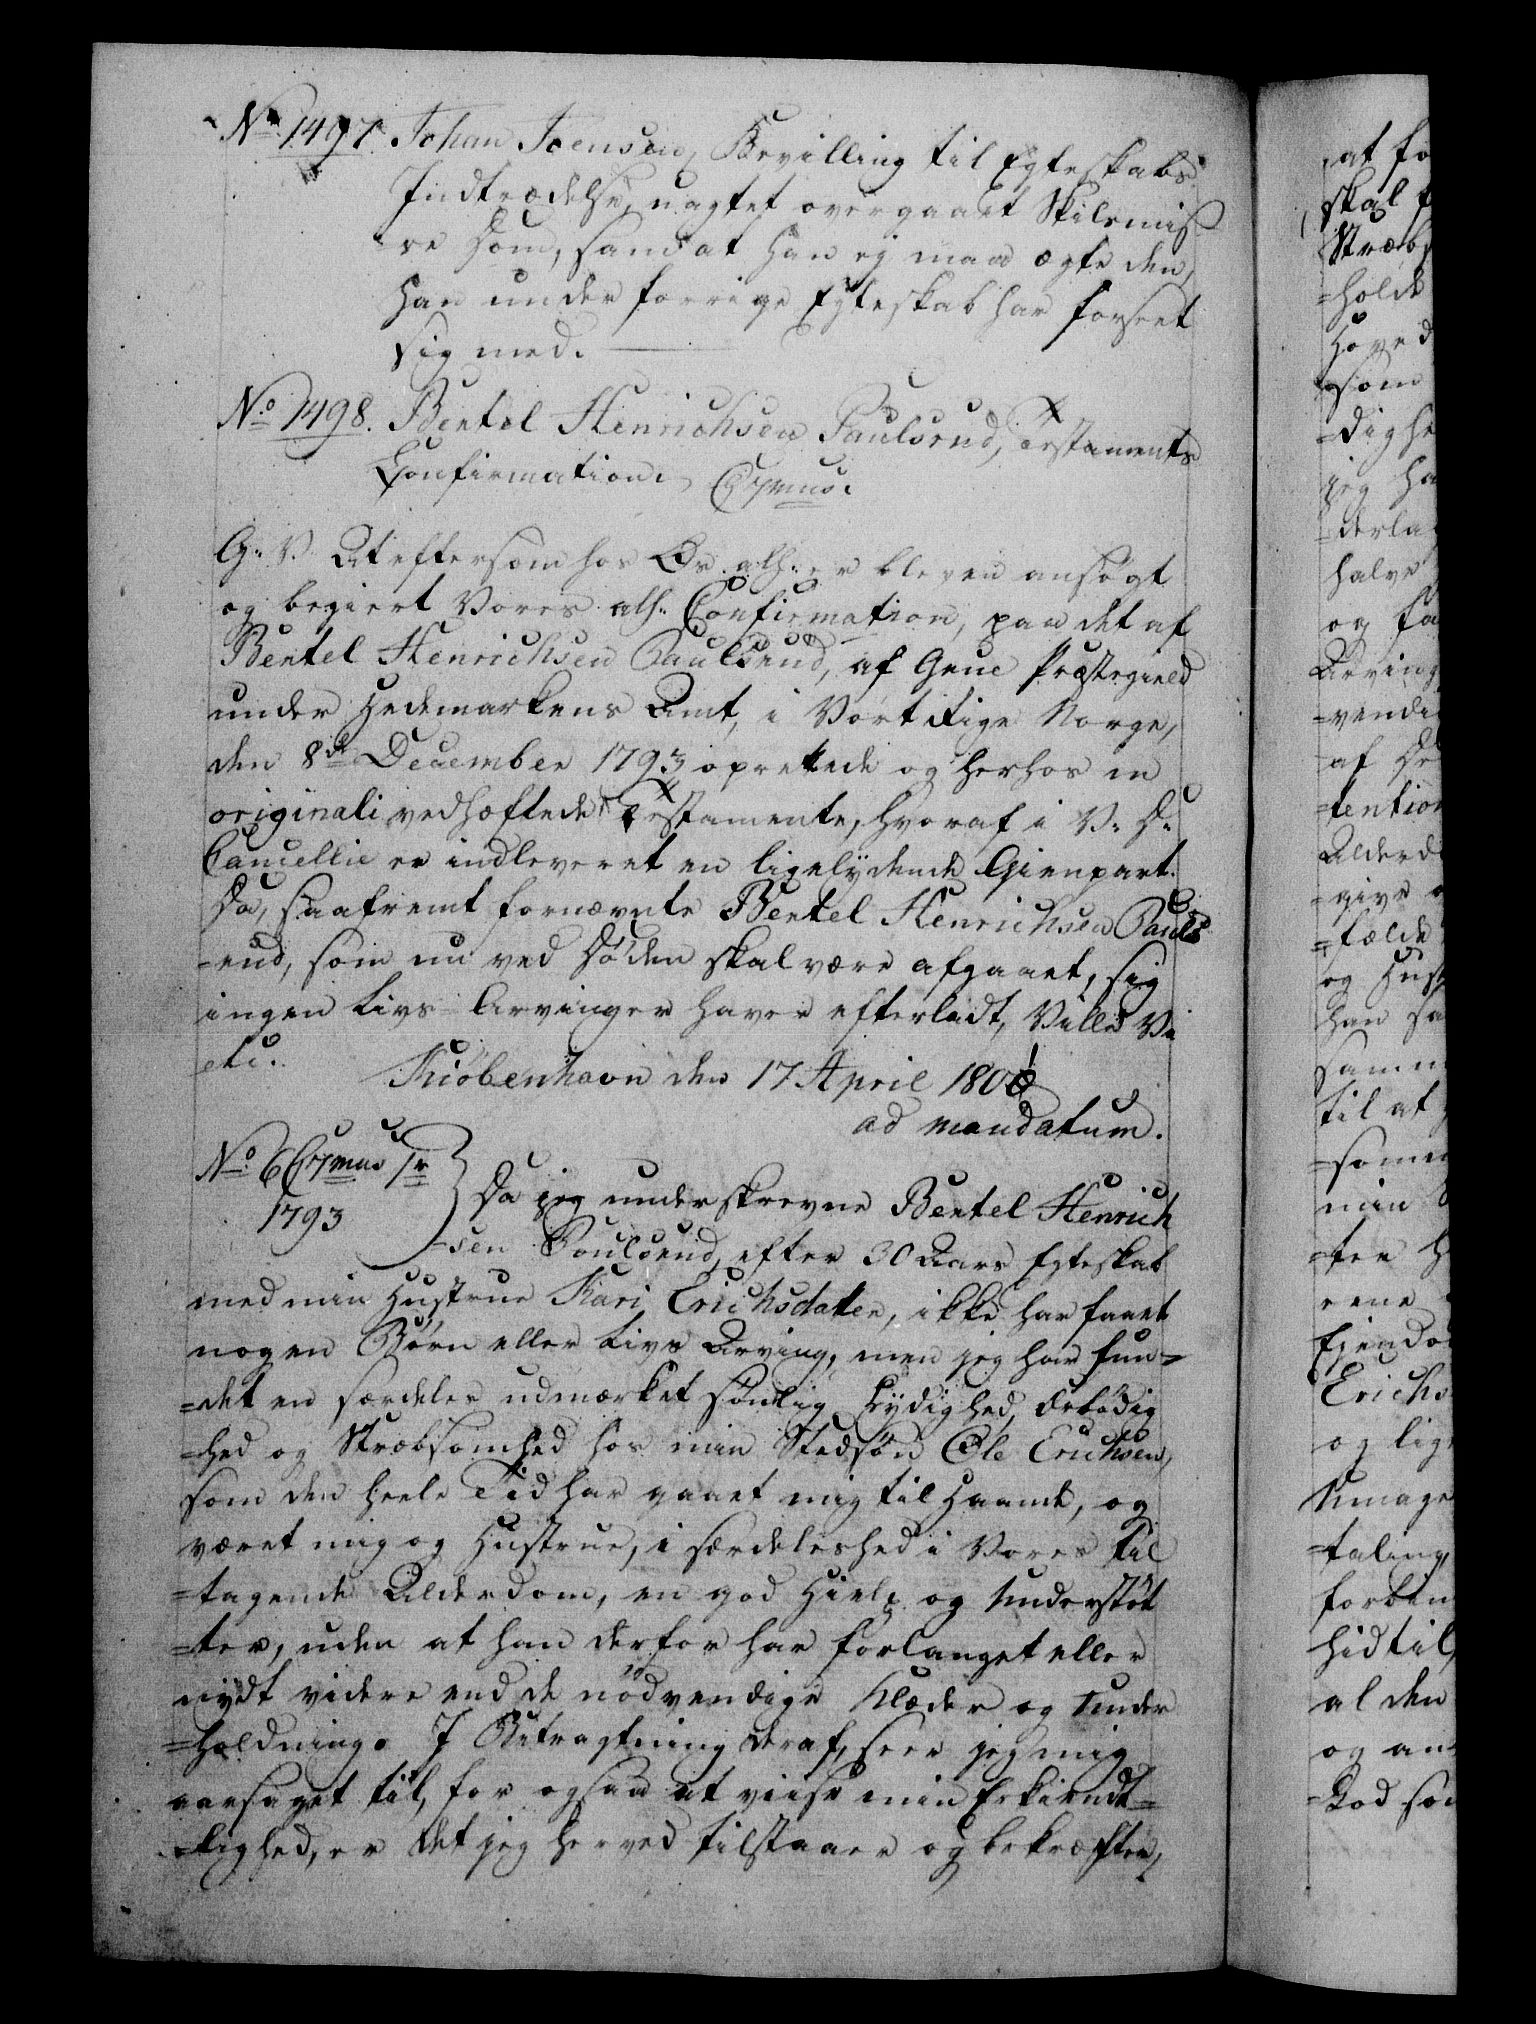 No 1497. Johan Joensen, Bevilling til Egteskabs
Indtrædelse, uagtet overgaaet Skilsmis
se Dom, samt at han ej maa ægte den,
han under forrige Egteskab har forseet
sig med.
No 1498. Bentel Henrichsen Paulsrud, Testaments
Confirmation. Crmus.
G. V. At eftersom hos Os alh: er bleven ansøgt
og begiert Vores alh: Confirmation, paa det af
Bentel Henrichsen Paulsrud, af Grue Præstegield
under Hedemarkens Amt, i Vort Rige Norge,
den 8de December 1793 oprettede og herhos in
originali vedhæftede Testamente, hvoraf i V. D.
Cancellie er indleveret en ligelydende Gienpart.
Da, saafremt fornævnte Bentel Henrichsen Pauls
-rud, som nu ved Døden skal være afgaaet, sig
ingen Livs Arvinger haver efterladt, Ville Vi
etc.
Kiøbenhavn den 17 April 1801
ad mandatum.
No 6 Crmus 1r
1793
Da jeg underskrevne Bentel Henrich
-sen Poulsrud, efter 30 Aars Egteskab
med min Hustrue Kari Erichsdatter, ikke har faaet
nogen Børn eller Livs Arving, men jeg har fun-
=det en særdeles udmærket sønlig Lydighed, Ærbødig
=hed og Stræbsomhed hos min Stedsøn Ole Erichsen,
som den heele Tid har gaaet mig til Haande, og
været mig og Hustrue, i særdeleshed i Vores til
=tagende Alderdom, en god Hielp og Understøt
=ter, uden at han derfor har forlanget eller
nydt videre end de nødvendige Klæder og Under
=holdning. I Betragtning deraf, seer jeg mig
aarsaget til, for ogsaa at viise min Erkiendt=
=lighed, er det jeg herved tilstaaer og bekræfter,
at fo
skal
Stræbs
=holde
Hoved
som
=dighe
jeg ha
derla
halve
og fa
Arving
=vendi
af de
=tention
Alderd
=give
=fælde
og Hust
han sa
samm
til at
=somm
min
=ter H
rene
Eiendo
Erichs
og lige
Umage
=taling
forbin
hidtil
al den
og an
God som